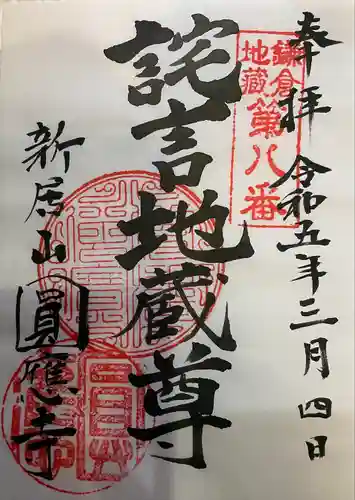 奉拝 令和五年三月四日
鎌倉
地蔵
第八番
詫言地蔵尊
新居山
圓應寺